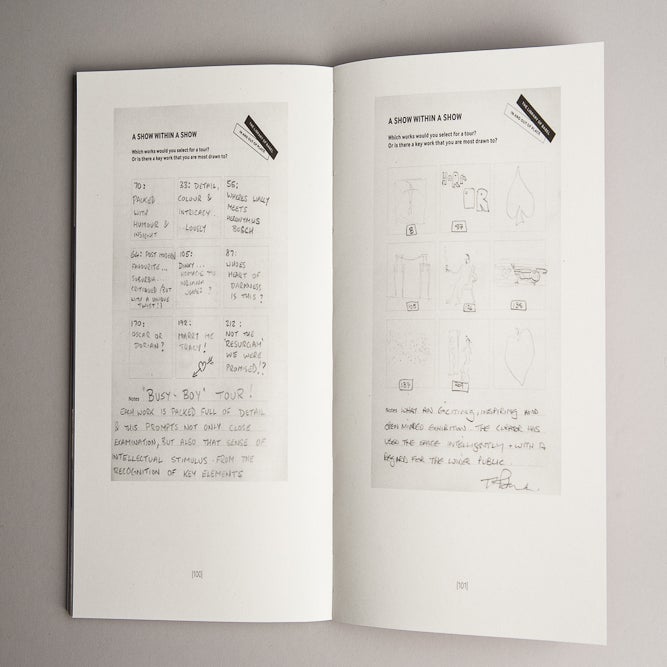 A SHOW WITHIN A SHOW
THE LIBRARY OF BABEL
IN AND OUT OF PLACE
Which works would you select for a tour?
Or is there a key work that you are most drawn to?
70:
PACKED
WITH
HUMOUR &
INSIGHT
33: DETAIL,
COLOUR &
INTRICACY...
...LOVELY
55:
WHERES WALLY
MEETS
HIERONYMUS
BOSCH
66: POST MODERN
FAVOURITE...
SUBURBIA...
CRITIQUED (BUT
WITH A UNIQUE
TWIST!)
105:
DINKY...
HOMAGE TO
INDIANA
JONES?
87:
WHOSE
HEART OF
DARKNESS
IS THIS?
170:
OSCAR OR
DORIAN?
192:
MARRY ME
TRACY!
212:
NOT THE
'RESURGAM'
WE WERE
PROMISED!?
Notes "BUSY-BOY" TOUR!
EACH WORK IS PACKED FULL OF DETAIL
& THIS PROMPTS NOT ONLY CLOSE
EXAMINATION, BUT ALSO THAT SENSE OF
INTELLECTUAL STIMULUS FROM THE
RECOGNITION OF KEY ELEMENTS
[100]
A SHOW WITHIN A SHOW
THE LIBRARY OF BABEL
IN AND OUT OF PLACE
Which works would you select for a tour?
Or is there a key work that you are most drawn to?
8
OR
105
Notes WHAT AN EXCITING, INSPIRING AND
OPEN MINDED EXHIBITION. THE CURATOR HAS
USED THE SPACE INTELLIGENTLY + WITH
REGARD FOR THE WIDER PUBLIC.
[101]